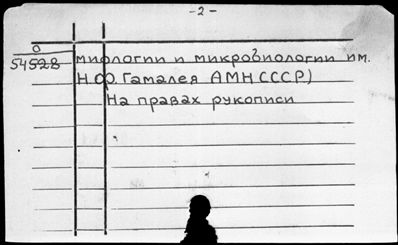 -2-
0
54528
мифлогии и микробиологии им.
Н.Ф. Гамалея АМН СССР)
На правах рукописи